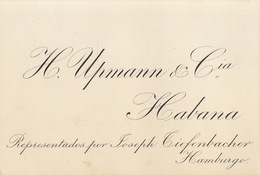 H. Upmann & Cia
Habana
Representados por Joseph Tiefenbacher
Hamburgo.